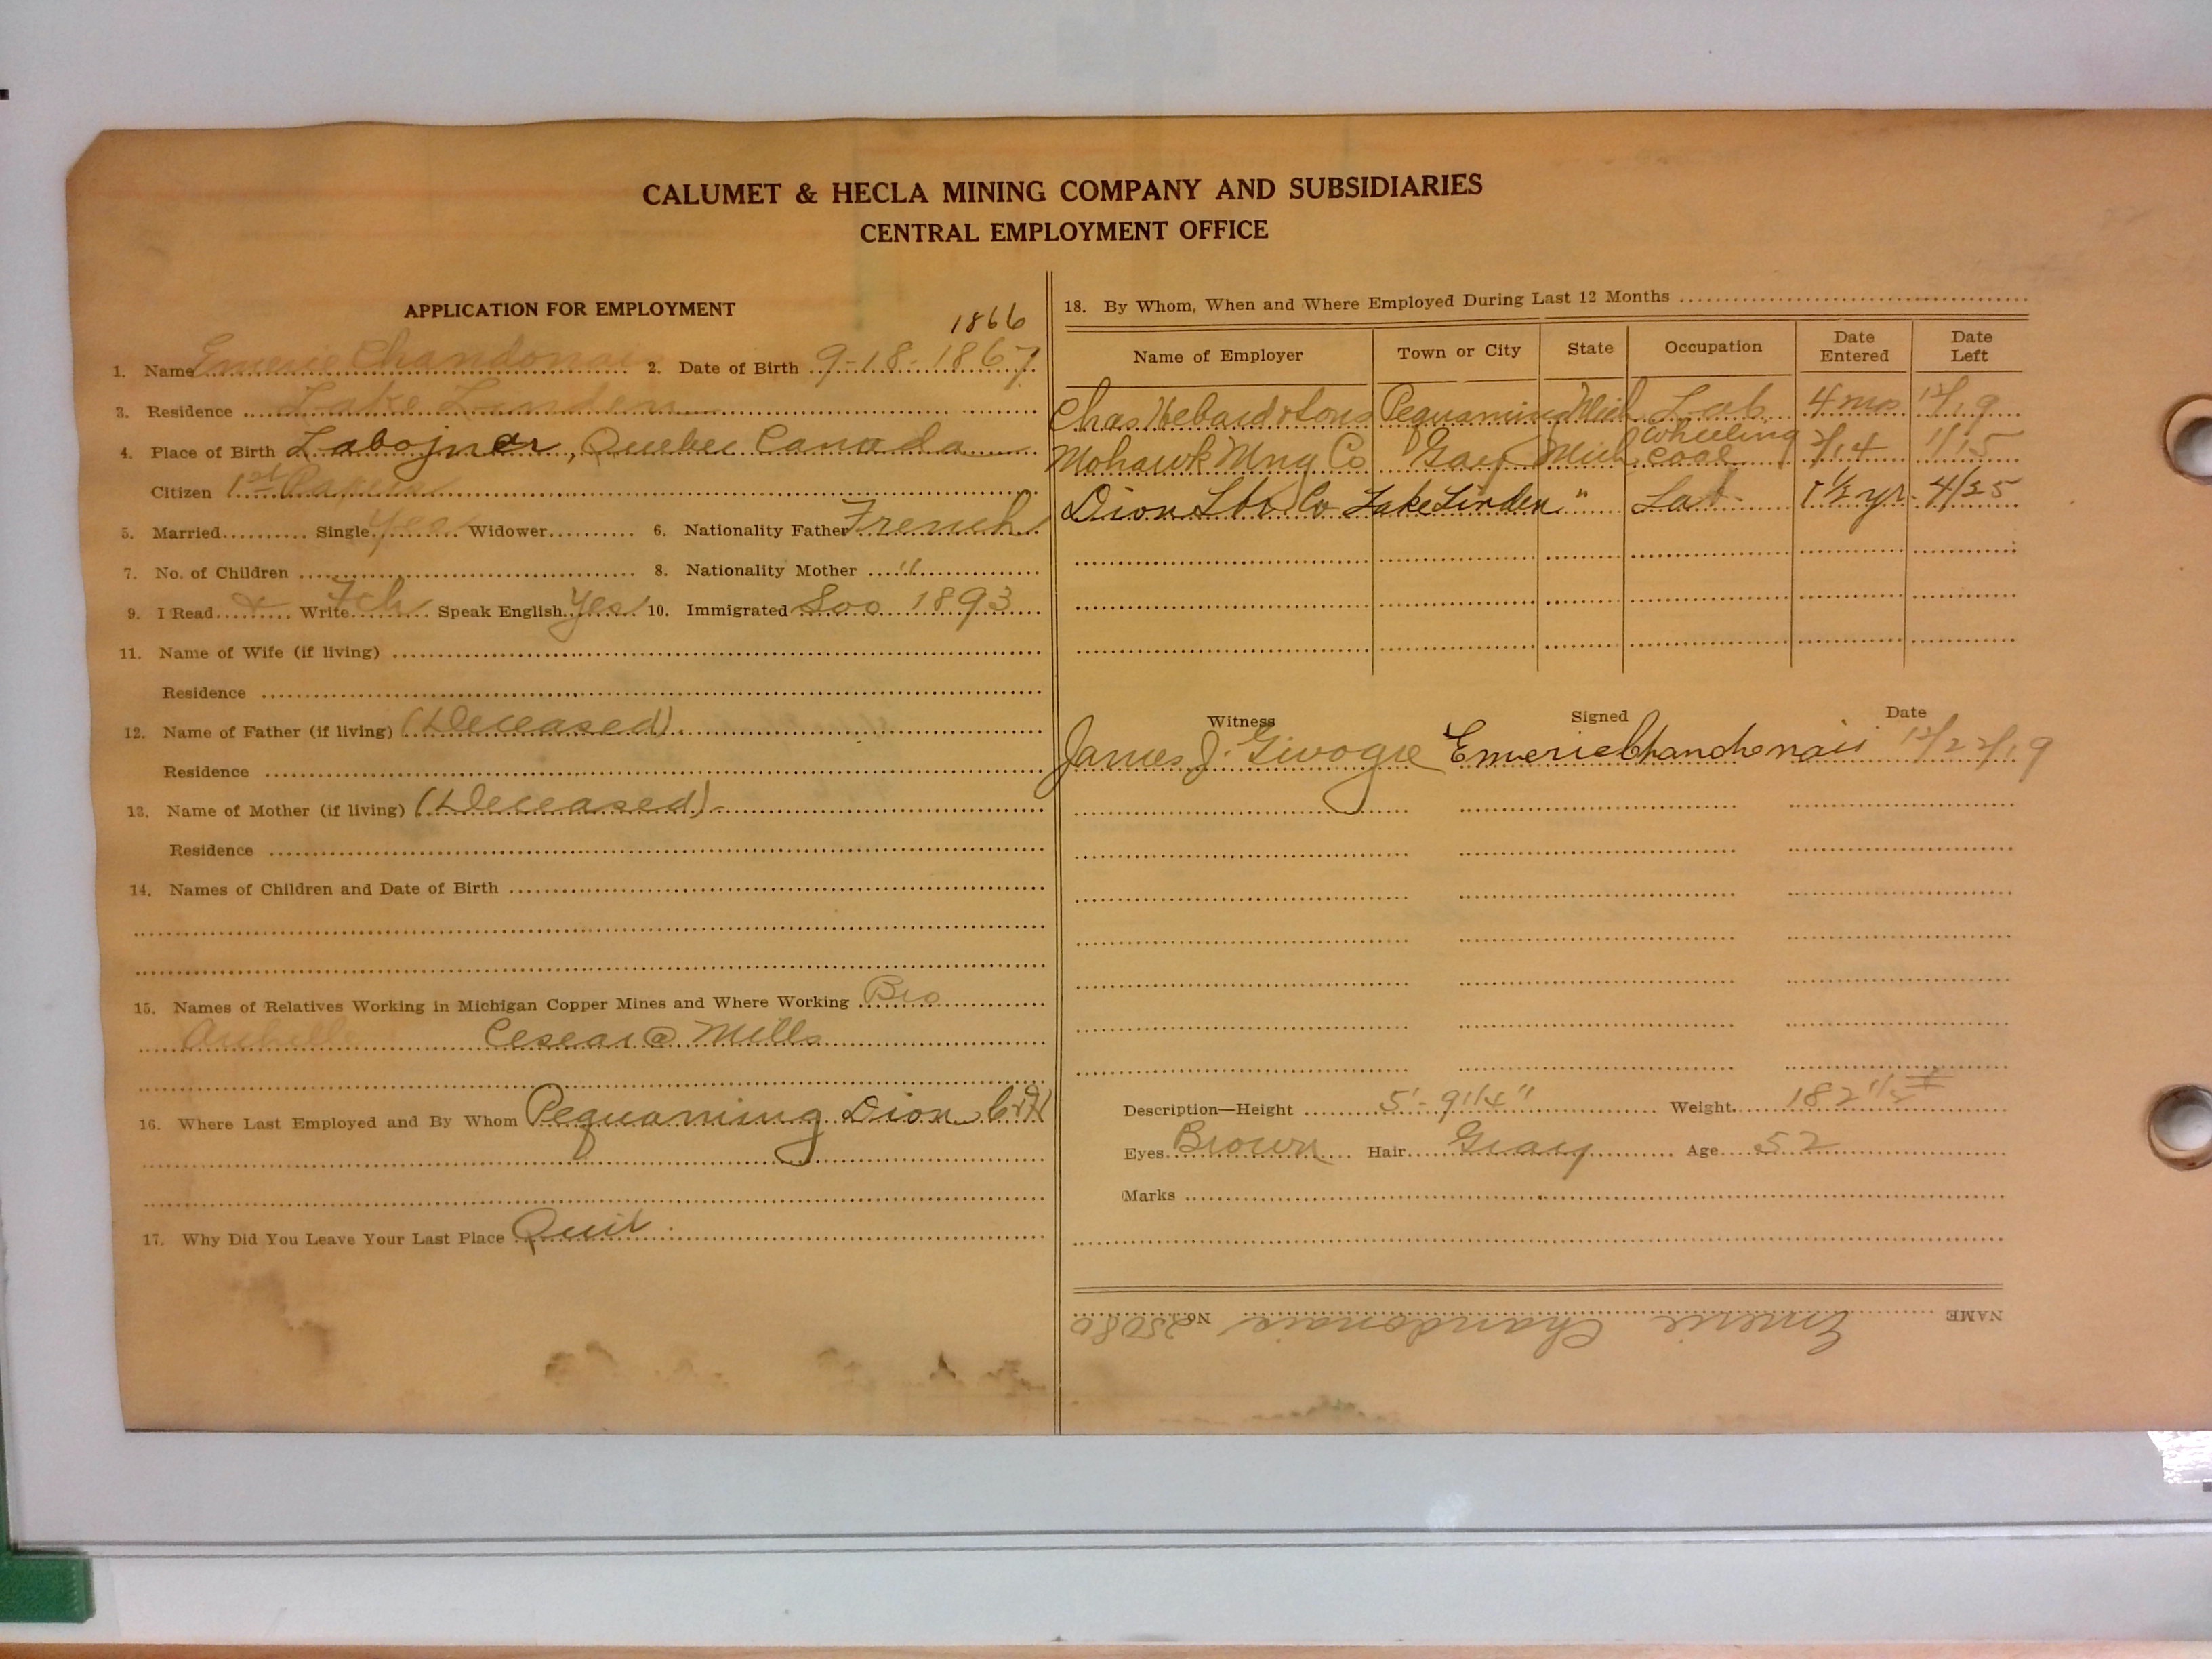 CALUMET & HECLA MINING COMPANY AND SUBSIDIARIES
CENTRAL EMPLOYMENT OFFICE
APPLICATION FOR EMPLOYMENT
1866
1. Name Emerie Chandonais 2. Date of Birth 9-18-1867
3. Residence Lake Linden
4. Place of Birth Labojner, Quebec Canada
Citizen 1st Papers
5. Married Single Yes Widower 6. Nationality Father French
7. No. of Children 8. Nationality Mother "
9. I Read & Write Fch Speak English Yes 10. Immigrated Soo 1893
11. Name of Wife (if living)
Residence
12. Name of Father (if living) (Deceased)
Residence
13. Name of Mother (if living) (Deceased)
Residence
14. Names of Children and Date of Birth
15. Names of Relatives Working in Michigan Copper Mines and Where Working Bro
Cesear @ Mills
16. Where Last Employed and By Whom Pequaming Dion C&H
17. Why Did You Leave Your Last Place Quit.
18. By Whom, When and Where Employed During Last 12 Months
Name of Employer Town or City State Occupation Date Entered Date Left
Chas Hebard & Sons Pequaming Mich Lab 4 mo 12/19
Mohawk Mng Co Gay Mich Wheeling coal 2/14 1/15
Dion Lbr Co Lake Linden " Lab. 1 1/2 yr. 4/25
Witness Signed Date
James J. Emerie Chandonais 12/22/19
Description—Height 5'-9 1/4" Weight 182 1/2 #
Eyes Brown Hair Gray Age 52
Marks
NAME Emerie Chandonais No. 25080